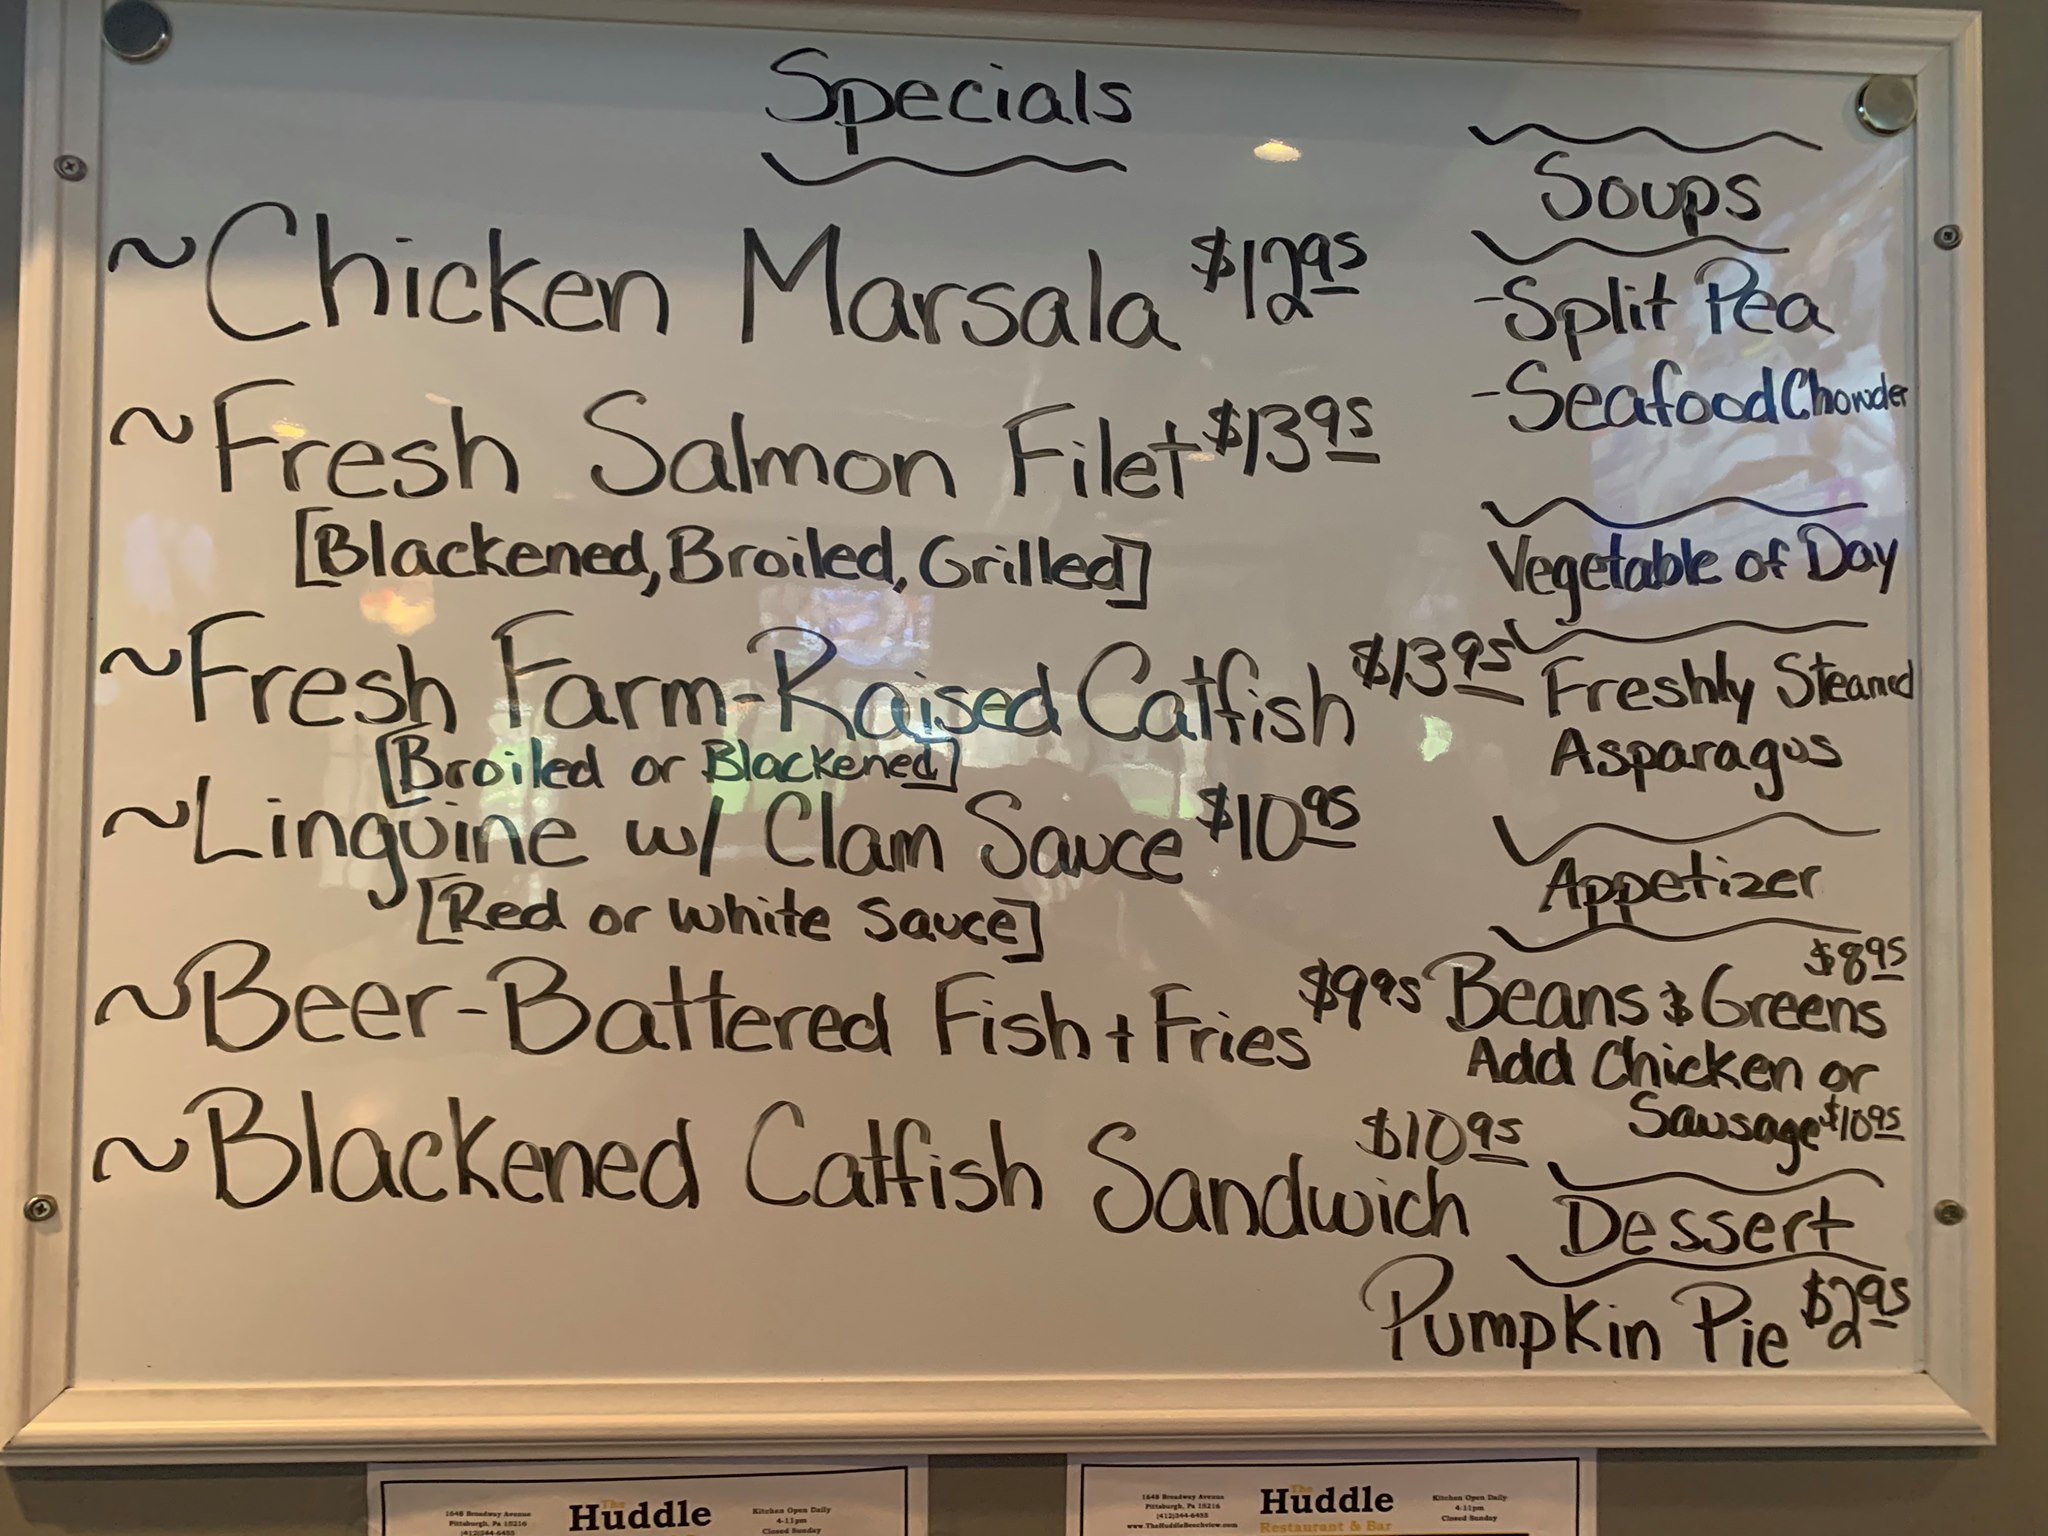 Specials
~Chicken Marsala $12.95
~Fresh Salmon Filet $13.95
[Blackened, Broiled, Grilled]
~Fresh Farm-Raised Catfish $13.95
[Broiled or Blackened]
~Linguine w/ Clam Sauce $10.95
[Red or White Sauce]
~Beer-Battered Fish + Fries $9.95
~Blackened Catfish Sandwich $10.95
Soups
-Split Pea
-Seafood Chowder
Vegetable of Day
Freshly Steamed
Asparagus
Appetizer
Beans & Greens $8.95
Add Chicken or
Sausage $10.95
Dessert
Pumpkin Pie $2.95
1648 Broadway Avenue
Pittsburgh, Pa 15216
(412)344-6455
The
Huddle
Kitchen Open Daily
4-11pm
Closed Sunday
1648 Broadway Avenue
Pittsburgh, Pa 15216
(412)344-6455
www.TheHuddleBeechview.com
The
Huddle
Restaurant & Bar
Kitchen Open Daily
4-11pm
Closed Sunday